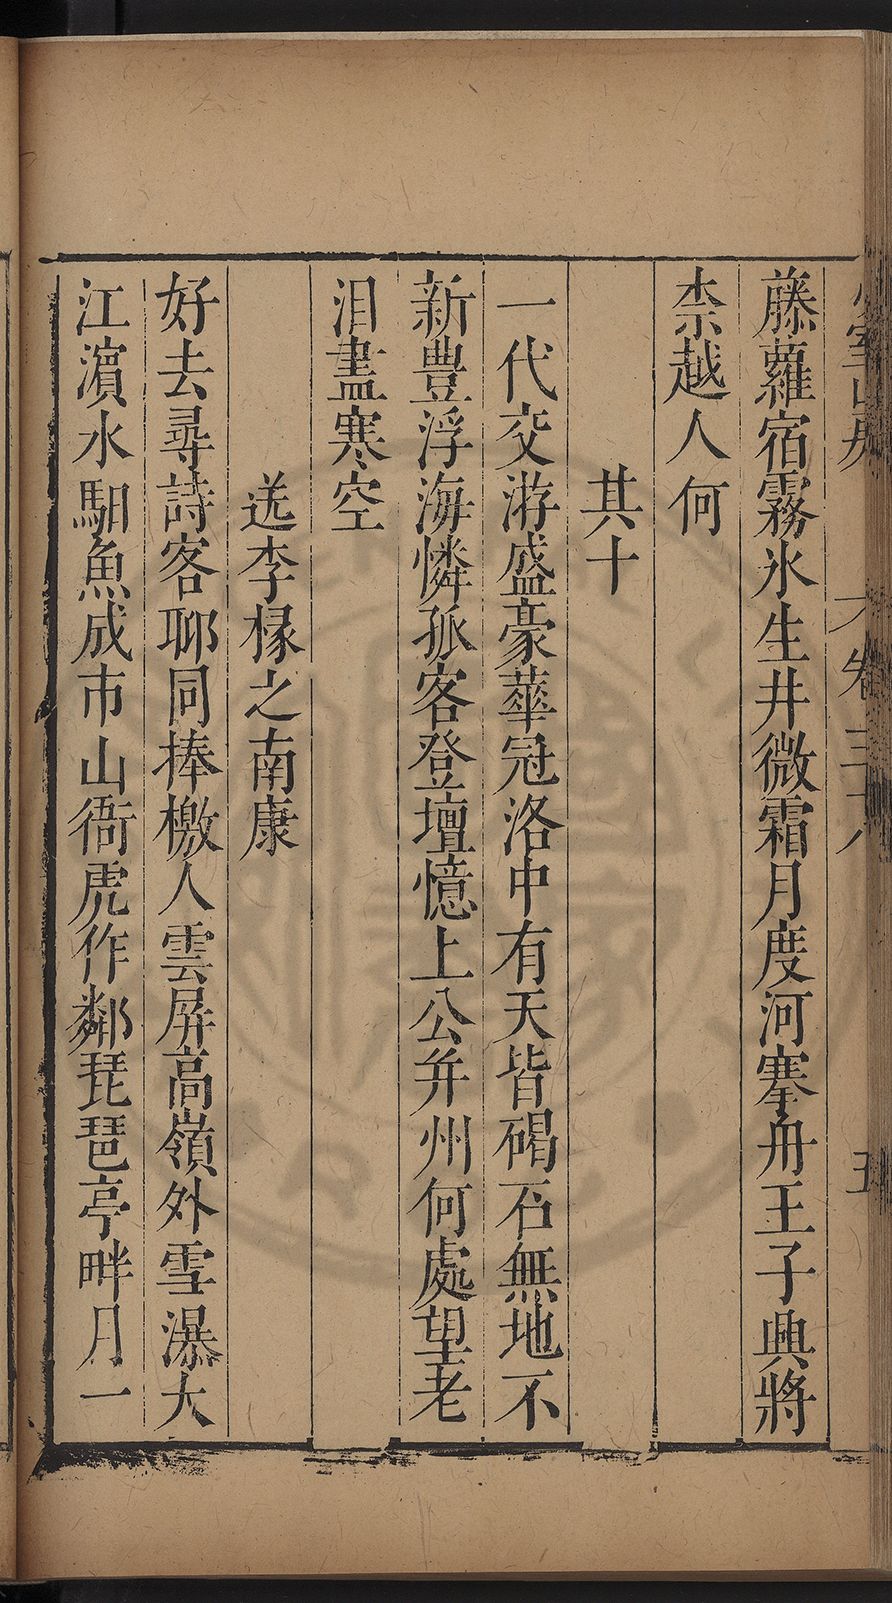 卷三十八
五
藤蘿宿霧氷生井微霜月度河搴舟王子興將
柰越人何
其十
一代交游盛豪華冠洛中有天皆碣石無地不
新豊浮海憐孤客登壇憶上公并州何處望老
泪盡寒空
送李椽之南康
好去尋詩客耶同捧檄人雲屏高嶺外雪瀑大
江濵水馹魚成市山衙虎作鄰琵琶亭畔月一